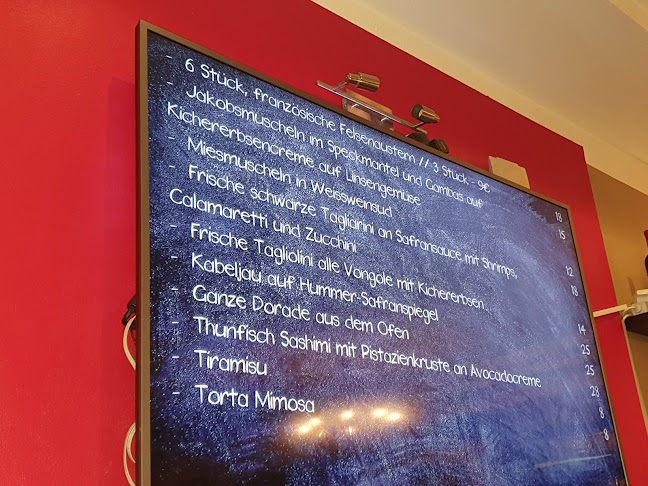 - 6 Stück, französische Felsenaustern // 3 Stück = 9€ 18
- Jakobsmuscheln im Speckmantel und Gambas auf 15
Kichererbsencreme auf Linsengemüse
- Miesmuscheln in Weissweinsud 12
- Frische schwarze Tagliarini an Safransauce mit Shrimps, 18
Calamaretti und Zucchini
- Frische Tagliolini alle Vongole mit Kichererbsen 14
- Kabeljau auf Hummer-Safranspiegel 25
- Ganze Dorade aus dem Ofen 25
- Thunfisch Sashimi mit Pistazienkruste an Avocadocreme 28
- Tiramisu 8
- Torta Mimosa 8